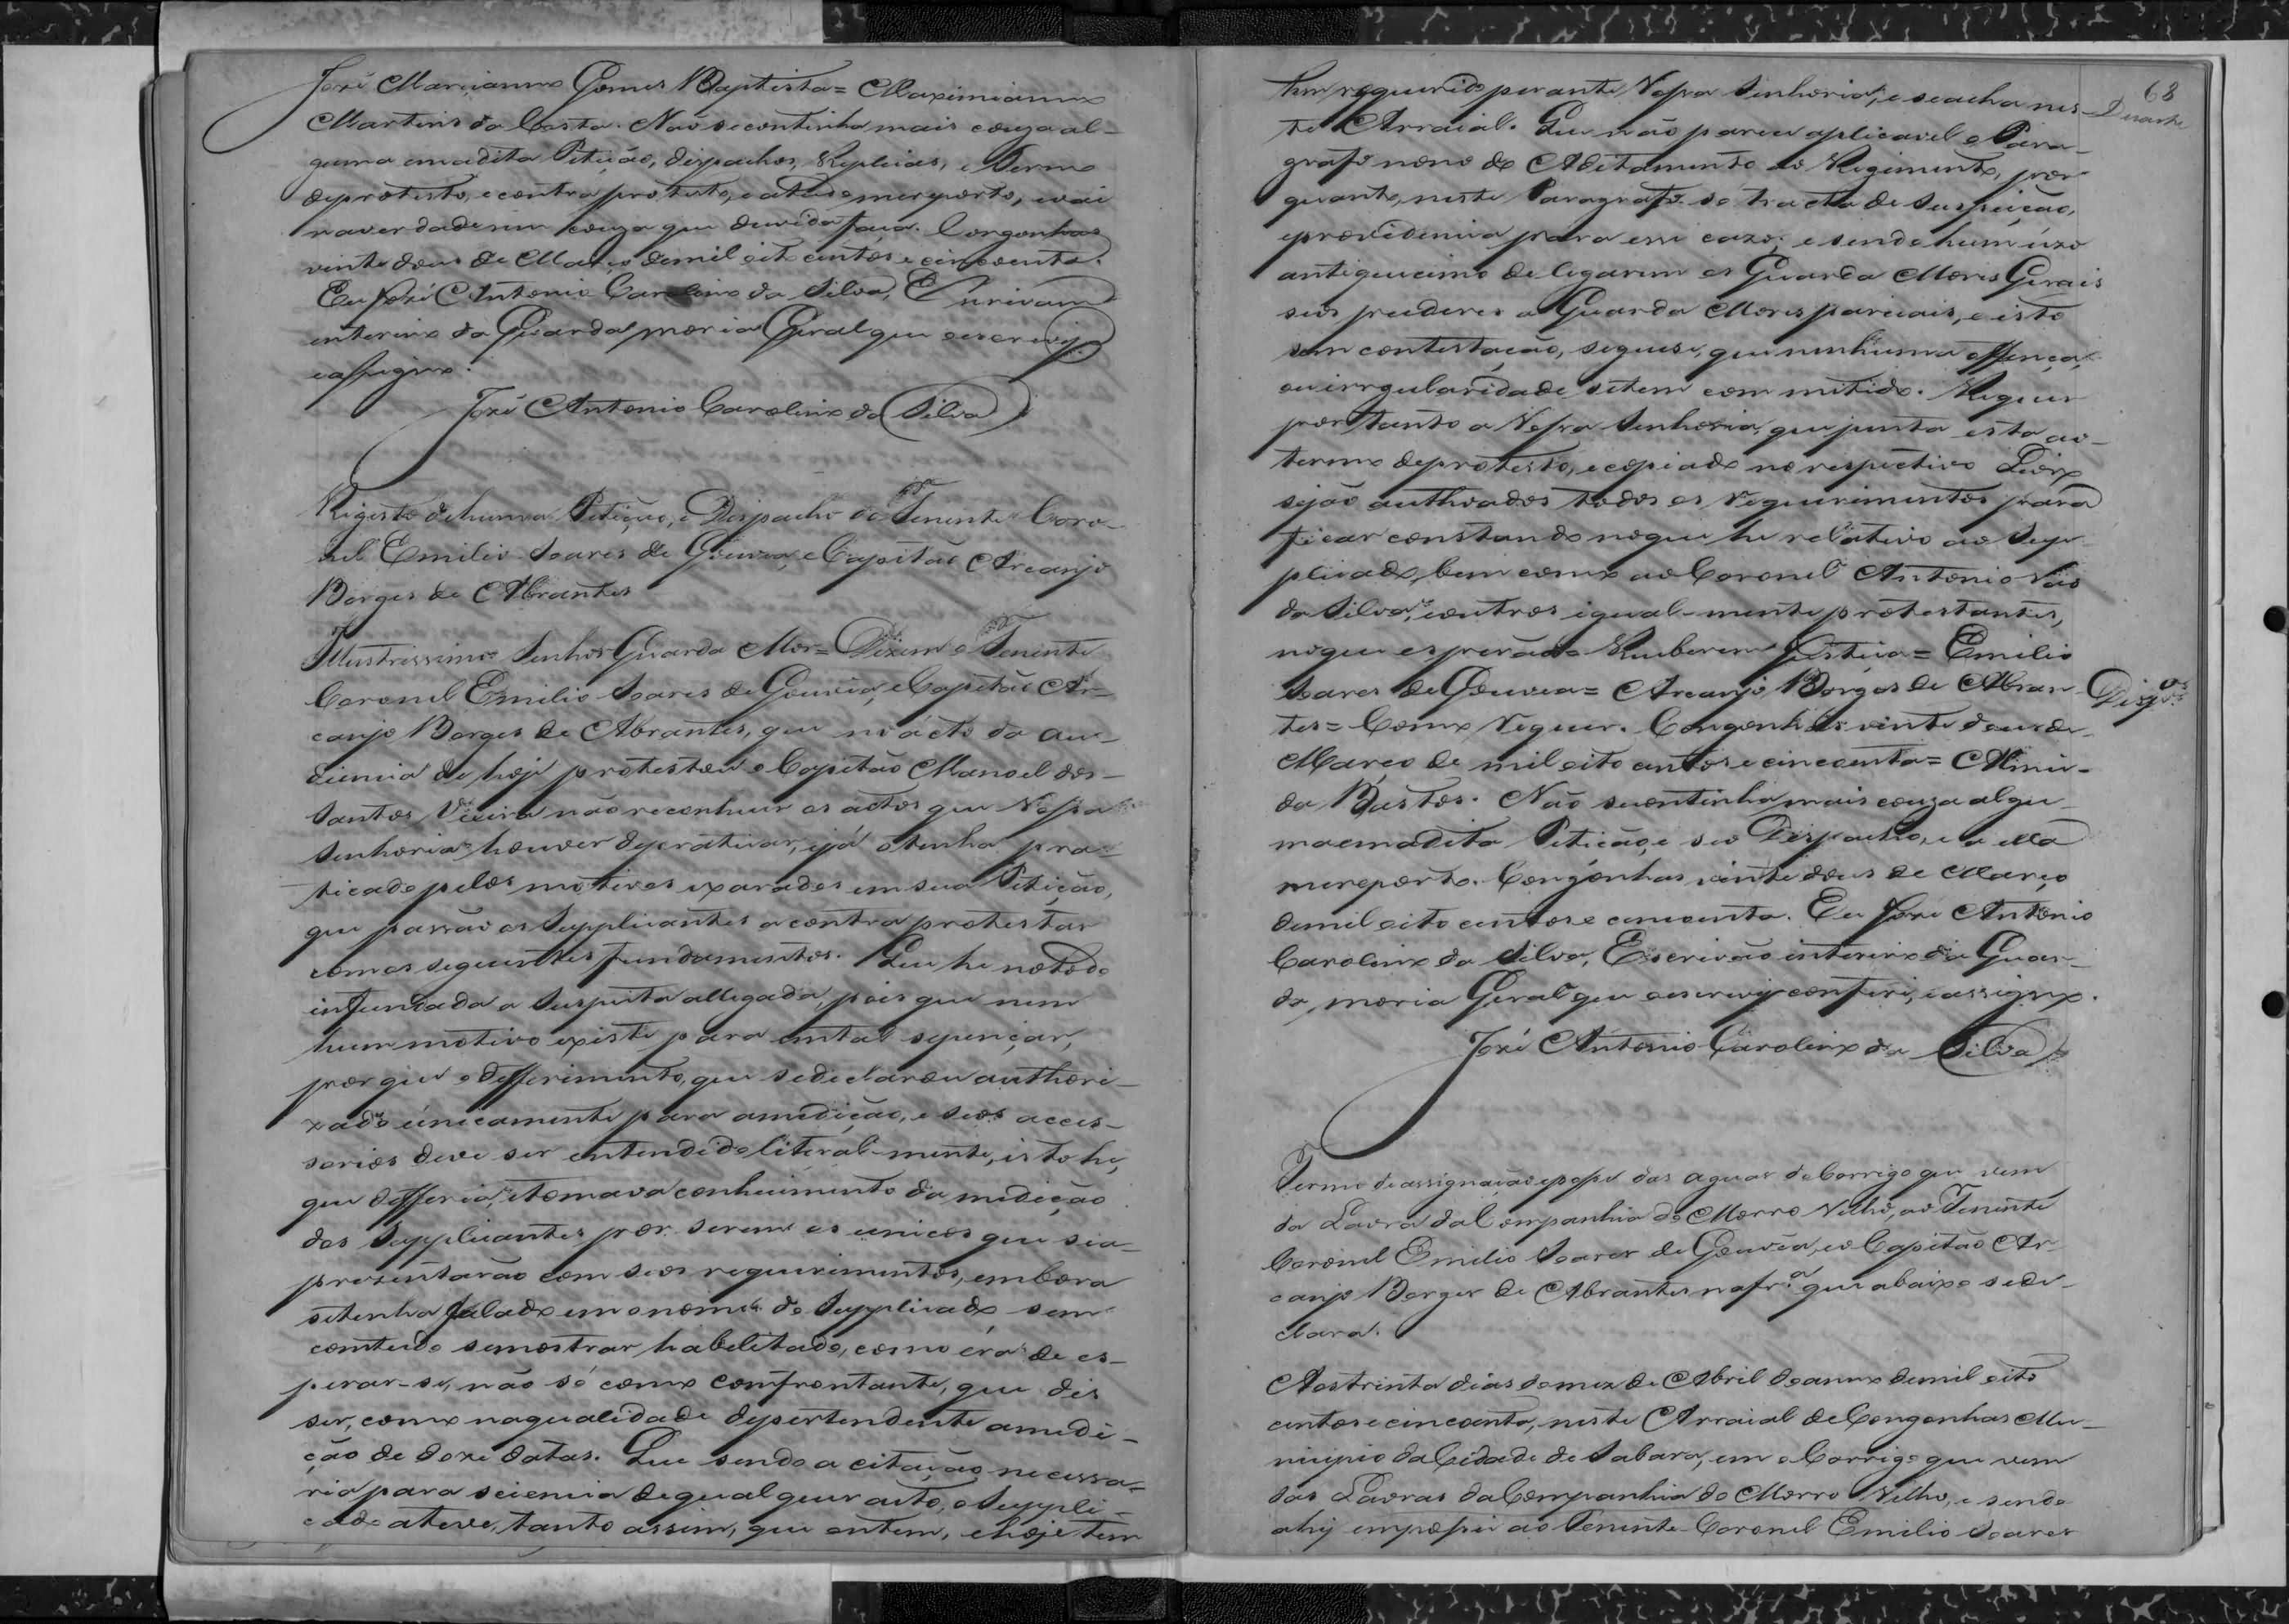 José Marcianno Gomes Baptista = Maximianno
Martins da Costa. Não se continha mais couza al-
guma em a dita Petição, dispachos, Replicas, e Termo
de protesto, e contra protesto, e a tudo me reporto, e vai
na verdade sem couza que duvida faça. Congonhas
vinte dous de Março de mil oito centos e cincoenta.
Eu José Antonio Carolino da Silva, Escrivam
interino da Guarda moria Geral que o escrevy
e assigno.
José Antonio Carolino da Silva
Rigisto de huma Petição, e Dispacho do Tenente Coro-
nel Emilio Soares de Gouvea, e Capitão Arcanjo
Borges de Abrantes
Illustrissimo Senhor Guarda Mor = Dizem o Tenente
Coronel Emilio Soares de Gouvea, e Capitão Ar-
canjo Borges de Abrantes, que no acto da au-
diencia de hoje protestou o Capitão Manoel dos-
Santos Vieira não reconhecer os actos que Vossa
Senhoria houver de praticar, e já o tenha pra-
ticado pelos motivos exarados em sua Petição,
que passão os Supplicantes a contra protestar
com os seguintes fundamentos. Que he notado
infundada a Suspeita allegada, pois que nem
hum motivo existe para em tal se pençar,
porque o defferimento, que se declarou authori-
zado únicamente para a medição, e seos acces-
sorios deve ser entendido literal-mente, isto he,
que defferia, e tomava conhecimento da medição
dos Supplicantes por serem os unicos que sea-
prezentarão com seos requirimentos, embora
se tenha falado em o nome do Supplicado sem
comtudo se mostrar habelitado, como éra de es-
perar-se, não só como confrontante, que dis
ser, como na qualidade de pertendente a medi-
ção de doze datas. Que sendo a citação necessa-
ria para sciencia de qual quer acto, o Suppli-
cado a teve, tanto assim, que ontem, e hoje tem
68
Duarte
tem requerido perante Vossa Senhoria, e se acha nes-
te Arraial. Que não parece aplicavel o Para-
grafo nono do Aditamento ao Regimento, por
quanto, neste Paragrafo se tracta de Suspeição,
e providencia para esse cazo; e sendo hum uzo
antiquicimo delegarem os Guarda Mores Gerais
seos puderes a Guarda Mores parciais, e isto
sem contestação, seguese, que nenhuma offença,
ou irregularidade se tem com mitido. Requer
por tanto a Vossa Senhoria, que junta esta ao-
termo de protesto, e copiado no respectivo Livro
sejão authoados todos os requirimentos para
ficar constando no que he relativo ao Sup-
plicado, bem como ao Coronel Antonio
da Silva, e outros igual-mente protestantes,
no que esperão Receberem Justiça = Emilio
Soares de Gouvea = Arcanjo Borges de Abran-
Disp.os
tes = Como Requer. Congonhas vinte dous de
Março de mil oito centos e cincoenta = Almei-
da Bastos. Não se continha mais couza algu-
ma em a dita Petição, e seo Dispacho, e a ella
me reporto. Congonhas vinte dous de Março
de mil oito centos e cincoenta. Eu José Antonio
Carolino da Silva, Escrivão interino da Guar-
da, moria Geral que o escrevy conferi, e assigno.
José Antonio Carolino da Silva
Termo de assignação e posse das aguas do Corrigo que vem
da Lavra da Companhia do Morro Velho, ao Tenente
Coronel Emilio Soares de Gouvêa, e o Capitão Ar-
canjo Borges de Abrantes na fr.a que abaixo se de-
clara.
Aos trinta dias do mez de Abril do anno de mil oito
centos e cincoenta, neste Arraial de Congonhas Mu-
nicipio da Cidade de Sabara, em o Corrigo que vem
das Lavras da Companhia do Morro Velho, e sendo
ahy em possei ao Tenente Coronel Emilio Soares